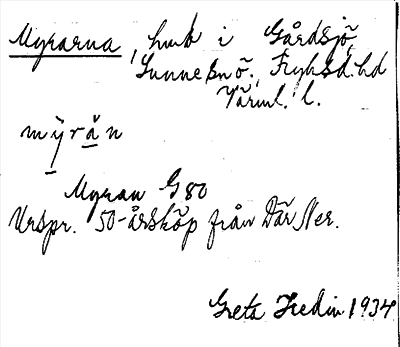 Myrarna, hmt i Gårdsjö,
Sunne sn ö., Fryksd. hd
Värml. l.
mȳrå̱n
Myran G 80
Urspr. 50-årsköp från Där Ner.
Greta Hedin 1934